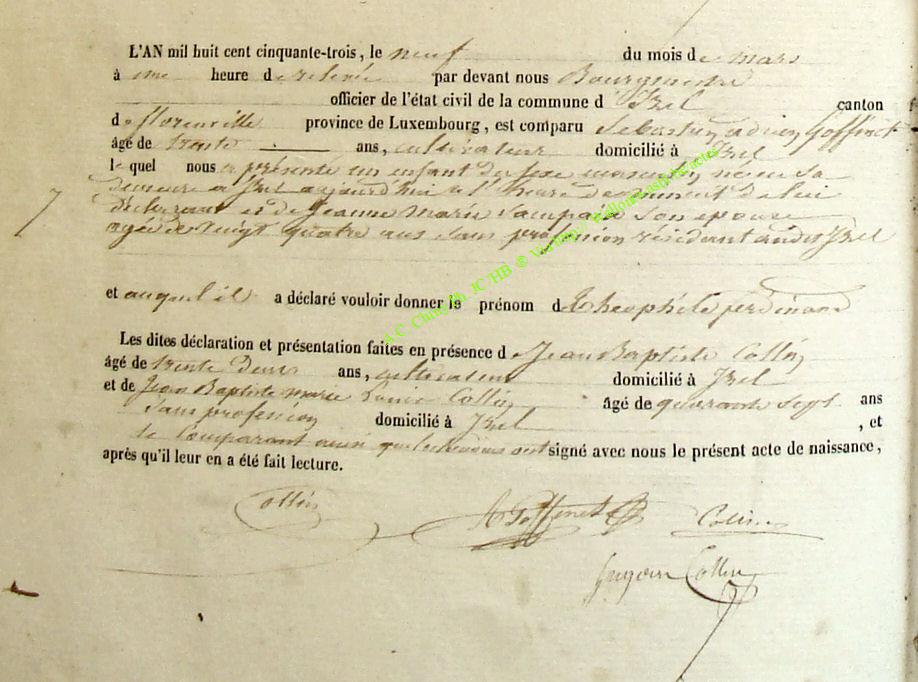 L'AN mil huit cent cinquante-trois, le neuf du mois de mars
à une heure de relevée par devant nous Bourgmestre
officier de l'état civil de la commune d'Izel canton
de florenville province de Luxembourg, est comparu Sebastien adrien Goffinet
âgé de trente ans, cultivateur domicilié à Izel
lequel nous a présenté un enfant du sexe masculin, né en sa
demeure a Izel aujourd'hui à l'heure de de lui
déclarant et de Jeanne Marie son epouse
agée de vingt quatre ans sans profession résidant audit Izel
et auquel il a déclaré vouloir donner le prénom de Theophile ferdinand
Les dites déclaration et présentation faites en présence de Jean Baptiste Collin
âgé de trente deux ans, cultivateur domicilié à Izel
et de Jean Baptiste marie Collin âgé de quarante sept ans
sans profession domicilié à Izel , et
le Comparant ainsi que les témoins ont signé avec nous le présent acte de naissance,
après qu'il leur en a été fait lecture.
Collin A Goffinet Collin
Collin
A.C. Chiny Ph. JC HB © Visilux - Wallonia